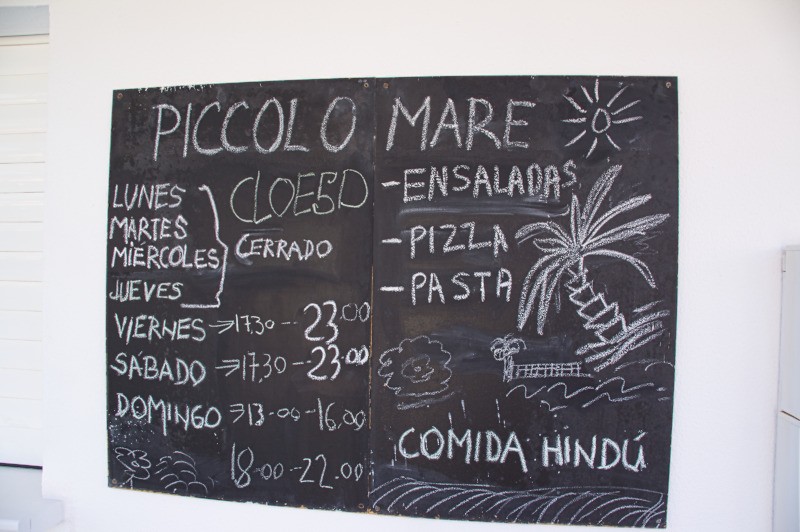 PICCOLO MARE
LUNES
MARTES
MIÉRCOLES
JUEVES
CLOE5D
CERRADO
VIERNES → 17.30 -- 23.00
SABADO → 17.30 - 23.00
DOMINGO → 13-00 - 16.00
18-00 - 22.00
- ENSALADAS
- PIZZA
- PASTA
COMIDA HINDÚ